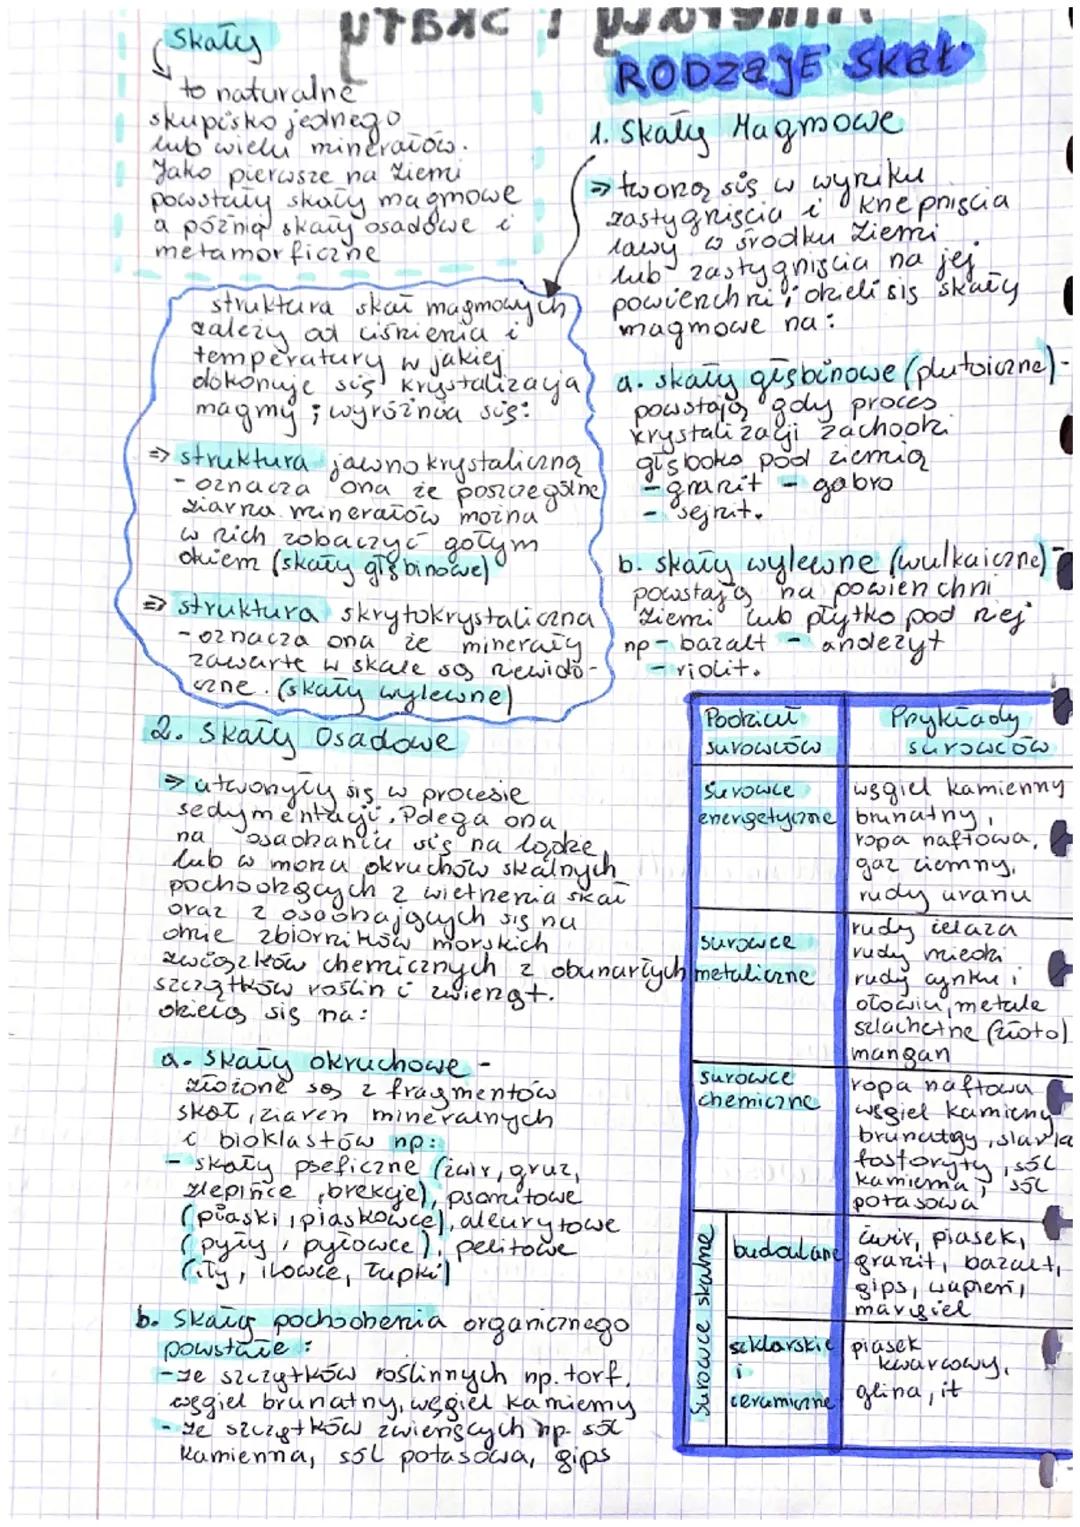 Skały
to naturalne
skupisko jednego
lub wielu minerałów.
Jako pierwsze na Ziemi
powstały skały magmowe
a późnią skały osadowe i
metamorficzne
RODZAJE Skał
1. Skały Magmowe
⇒ tworzą się w wyniku
zastygnięcia i krzepnięcia
lawy w środku Ziemi
lub zastygnięcia na jej
powierzchni; dzieli się skały
magmowe na:
struktura skał magmowych
zależy od ciśnienia i
temperatury w jakiej
dokonuje się krystalizacja
magmy; wyróżnia się:
⇒ struktura jawnokrystaliczną
- oznacza ona że poszczególne
ziarna minerałów można
w nich zobaczyć gołym
okiem (skały głębinowe)
⇒ struktura skrytokrystaliczna
- oznacza ona że minerały
zawarte w skale są niewido-
czne. (skały wylewne)
a. skały głębinowe (plutoiczne) -
powstają gdy proces
krystalizacji zachodzi
głęboko pod ziemią
- granit - gabro
- sejnit.
b. skały wylewne (wulkaiczne) -
powstają na powierzchni
Ziemi lub płytko pod niej
np - bazalt - andezyt
- riolit.
2. Skały Osadowe
⇒ utworzyły się w procesie
sedymentacji. Polega ona
na osadzaniu się na lądzie,
lub w morzu okruchów skalnych
pochodzących z wietrzenia skał
oraz z osadzających się na
dnie zbiorników morskich
związków chemicznych z obumarłych
szczątków roślin i zwierząt.
dzielą się na:
a. Skały okruchowe -
złożone są z fragmentów
skał, ziaren mineralnych
i bioklastów np:
- skały pseficzne (żwir, gruz,
zlepińce, brekcje), psamitowe
(piaski, piaskowce), aleurytowe
(pyły, pyłowce), pelitowe
(iły, iłowce, łupki)
b. Skały pochodzenia organicznego
powstałe:
- ze szczątków roślinnych np. torf,
węgiel brunatny, węgiel kamienny
- ze szczątków zwierzęcych np. sól
kamienna, sól potasowa, gips
Podział surowców
Przykłady surowców
surowce energetyczne
węgiel kamienny
brunatny,
ropa naftowa,
gaz ziemny,
rudy uranu
surowce metaliczne
rudy żelaza
rudy miedzi
rudy cynku i
ołowiu, metale
szlachetne (złoto)
mangan
surowce chemiczne
ropa naftowa
węgiel kamieny
fosforyty, sól
kamienna, sól
potasowa
Surowce skalne
budowlane
żwir, piasek,
granit, bazalt,
gips, wapień,
margiel
szklarskie
i
ceramiczne
piasek
kwarcowy,
glina, ił